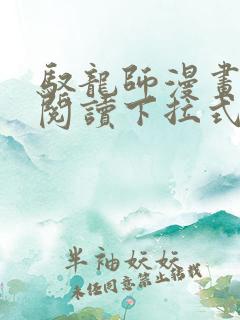 馭龍師漫畫
閱讀下拉式
半袖妖妖
未經同意禁止轉載